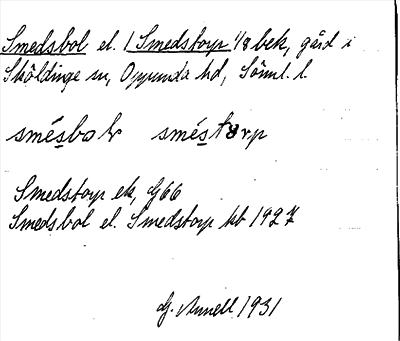 Smedsbol el. 1 Smedstorp 1/8 bek, gård i
Sköldinge sn, Oppunda hd, Söml. l.
smésbol sméstørp
Smedstorp ek, G66
Smedsbol el. Smedstorp kb 1927
G. Annell 1931